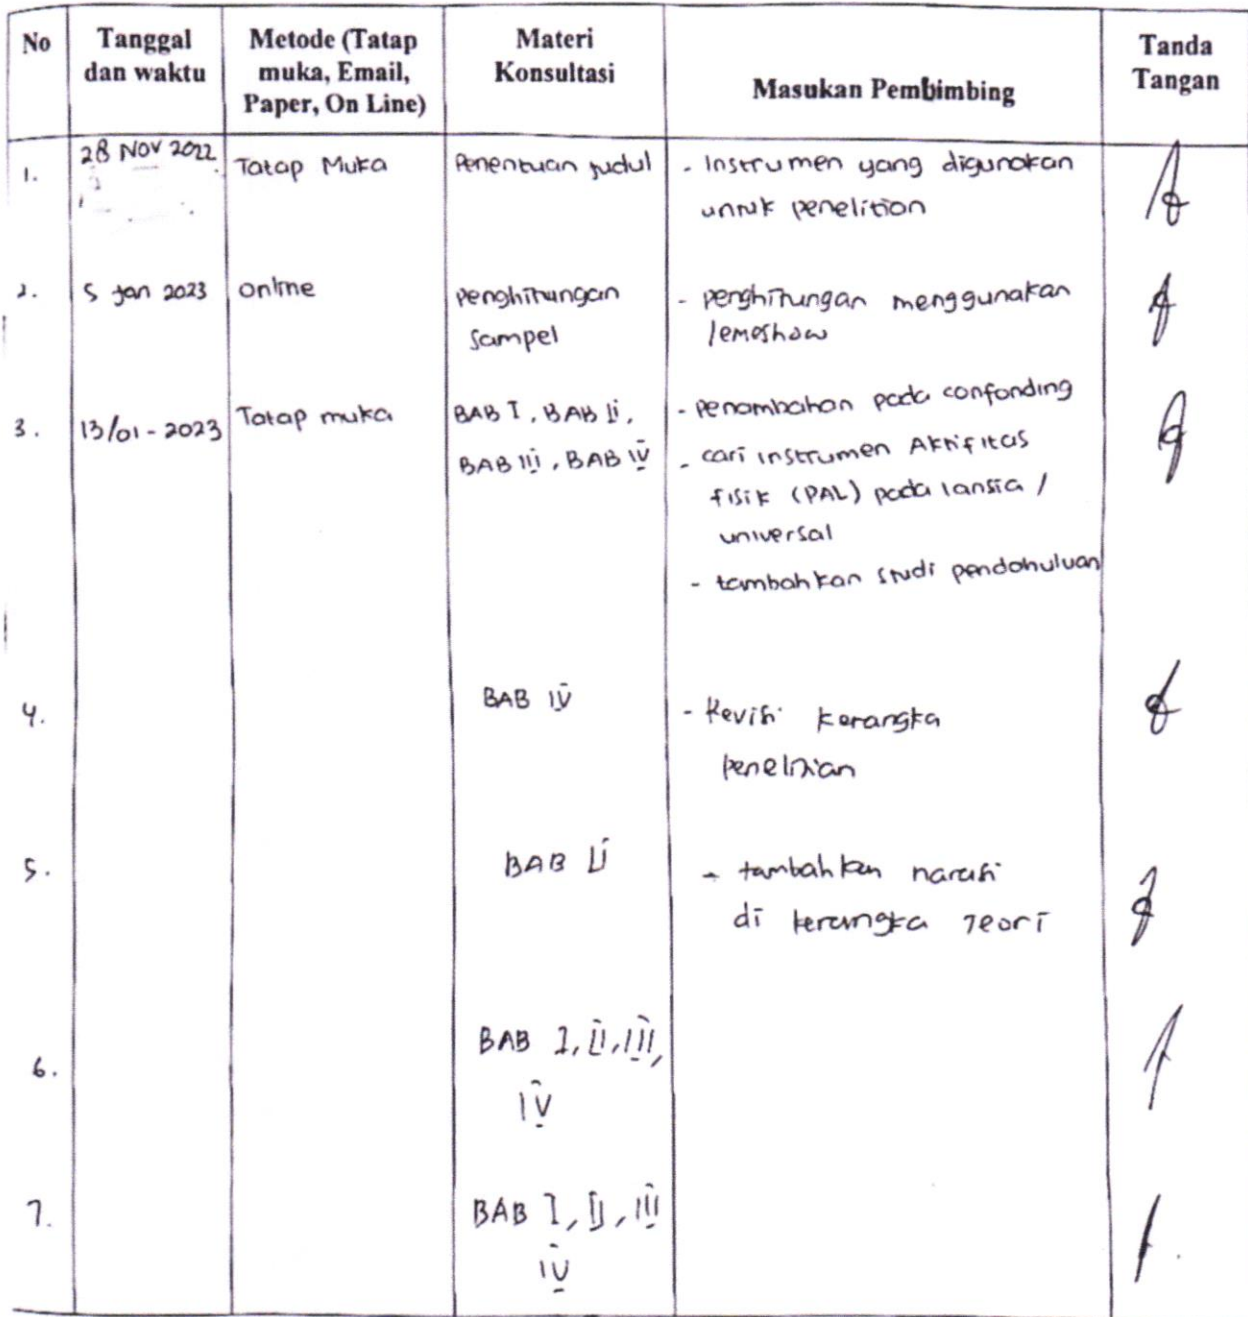 No
Tanggal
dan waktu
Metode (Tatap
muka, Email,
Paper, On Line)
Materi
Konsultasi
Masukan Pembimbing
Tanda
Tangan
1.
28 NOV 2022
Tatap Muka
Penentuan judul
- Instrumen yang digunakan
untuk penelitian
2.
5 Jan 2023
online
penghitungan
sampel
- penghitungan menggunakan
lemeshow
3.
13/01-2023
Tatap muka
BAB I, BAB II,
BAB III, BAB IV
- penambahan pada confonding
- cari instrumen Aktifitas
fisik (PAL) pada lansia /
universal
- tambahkan studi pendahuluan
4.
BAB IV
- Revisi kerangka
penelitian
5.
BAB II
- tambahkan narasi
di kerangka teori
6.
BAB I, II, III,
IV
7.
BAB I, II, III
IV